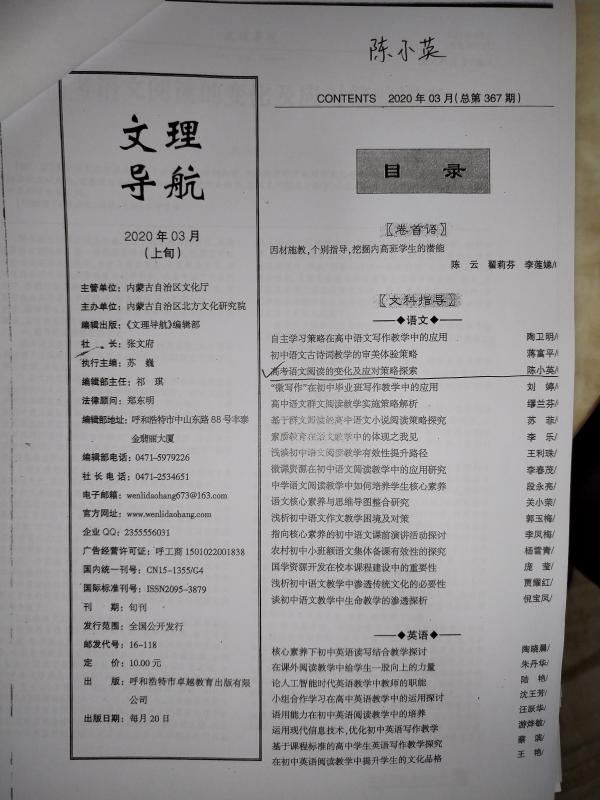 陈小英
CONTENTS 2020年03月(总第367期)
文理
导航
2020年03月
(上旬)
主管单位：内蒙古自治区文化厅
主办单位：内蒙古自治区北方文化研究院
编辑出版：《文理导航》编辑部
社 长：张文府
执行主编：苏 巍
编辑部主任：祁 琪
法律顾问：郑东明
编辑部地址：呼和浩特市中山东路88号丰泰
金翡丽大厦
编辑部电话：0471-5979226
社长电话：0471-2534651
电子邮箱：wenlidaohang673@163.com
官方网址：www.wenlidaohang.com
企业QQ：2355556031
广告经营许可证：呼工商1501022001838
国内统一刊号：CN15-1355/G4
国际标准刊号：ISSN2095-3879
刊 期：旬刊
发行范围：全国公开发行
邮发代号：16-118
定 价：10.00元
出 版：呼和浩特市卓越教育出版有限
公司
出版日期：每月20日
目 录
〖卷首语〗
因材施教，个别指导，挖掘内高班学生的潜能
陈 云 翟莉芬 李莲娣/
〖文科指导〗
◆语文◆
自主学习策略在高中语文写作教学中的应用 陶卫明/
初中语文古诗词教学的审美体验策略 蒋富平/
高考语文阅读的变化及应对策略探索 陈小英/
“微写作”在初中毕业班写作教学中的应用 刘 婷/
高中语文群文阅读教学实施策略解析 缪兰芬/
基于群文阅读的高中语文小说阅读策略探究 苏 菲/
素质教育在语文教学中的体现之我见 李 乐/
浅谈初中语文阅读教学有效性提升路径 王利珠/
微课资源在初中语文阅读教学中的应用研究 李春茂/
中学语文阅读教学中如何培养学生核心素养 段永亮/
语文核心素养与思维导图整合研究 关小荣/
浅析初中语文作文教学困境及对策 郭玉梅/
指向核心素养的初中语文课前演讲活动探讨 李凤梅/
农村初中小班额语文集体备课有效性的探究 杨雪青/
国学资源开发在校本课程建设中的重要性 庞 莹/
浅析初中语文教学中渗透传统文化的必要性 贾耀红/
谈初中语文教学中生命教学的渗透探析 倪宝凤/
◆英语◆
核心素养下初中英语读写结合教学探讨 陶晓晨/
在课外阅读教学中给学生一股向上的力量 朱丹华/
论人工智能时代英语教学中教师的职能 陆 艳/
小组合作学习在高中英语教学中的运用探讨 沈王芳/
语用能力在初中英语阅读教学中的培养 汪跃华/
运用现代信息技术，优化初中英语写作教学 游烨敏/
基于课程标准的高中学生英语写作教学探究 蔡 滨/
在初中英语阅读教学中提升学生的文化品格 王 艳/